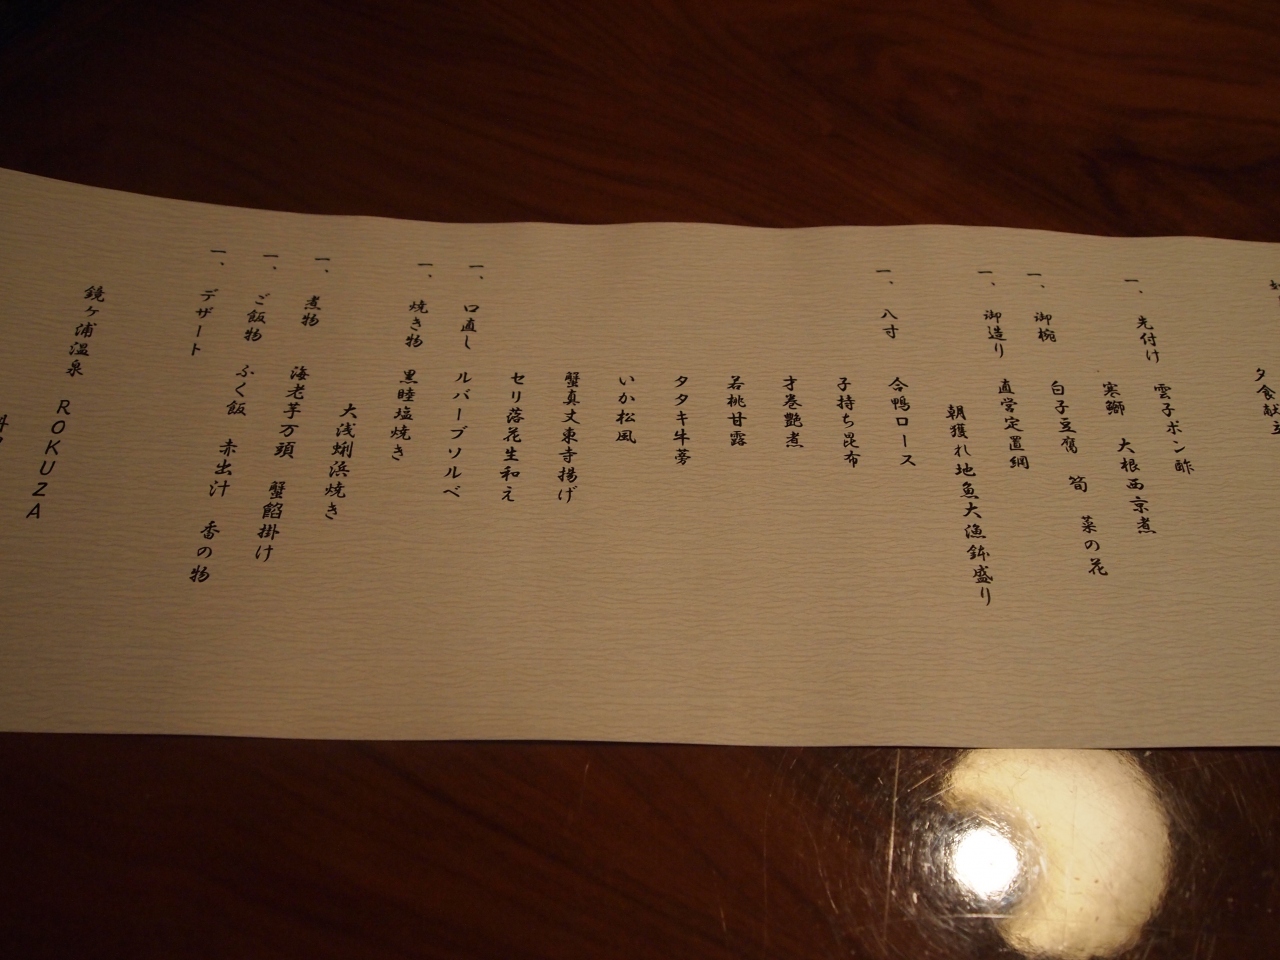 夕食献立
一、先付け 雲子ポン酢
寒鰤 大根西京煮
一、御椀 白子豆腐 筍 菜の花
一、御造り 直営定置網
朝獲れ地魚大漁鉢盛り
一、八寸 合鴨ロース
子持ち昆布
才巻艶煮
若桃甘露
タタキ牛蒡
いか松風
蟹真丈東寺揚げ
セリ落花生和え
一、口直し ルバーブソルベ
一、焼き物 黒睦塩焼き
大浅蜊浜焼き
一、煮物 海老芋万頭 蟹餡掛け
一、ご飯物 ふく飯 赤出汁 香の物
一、デザート
鏡ヶ浦温泉 ROKUZA